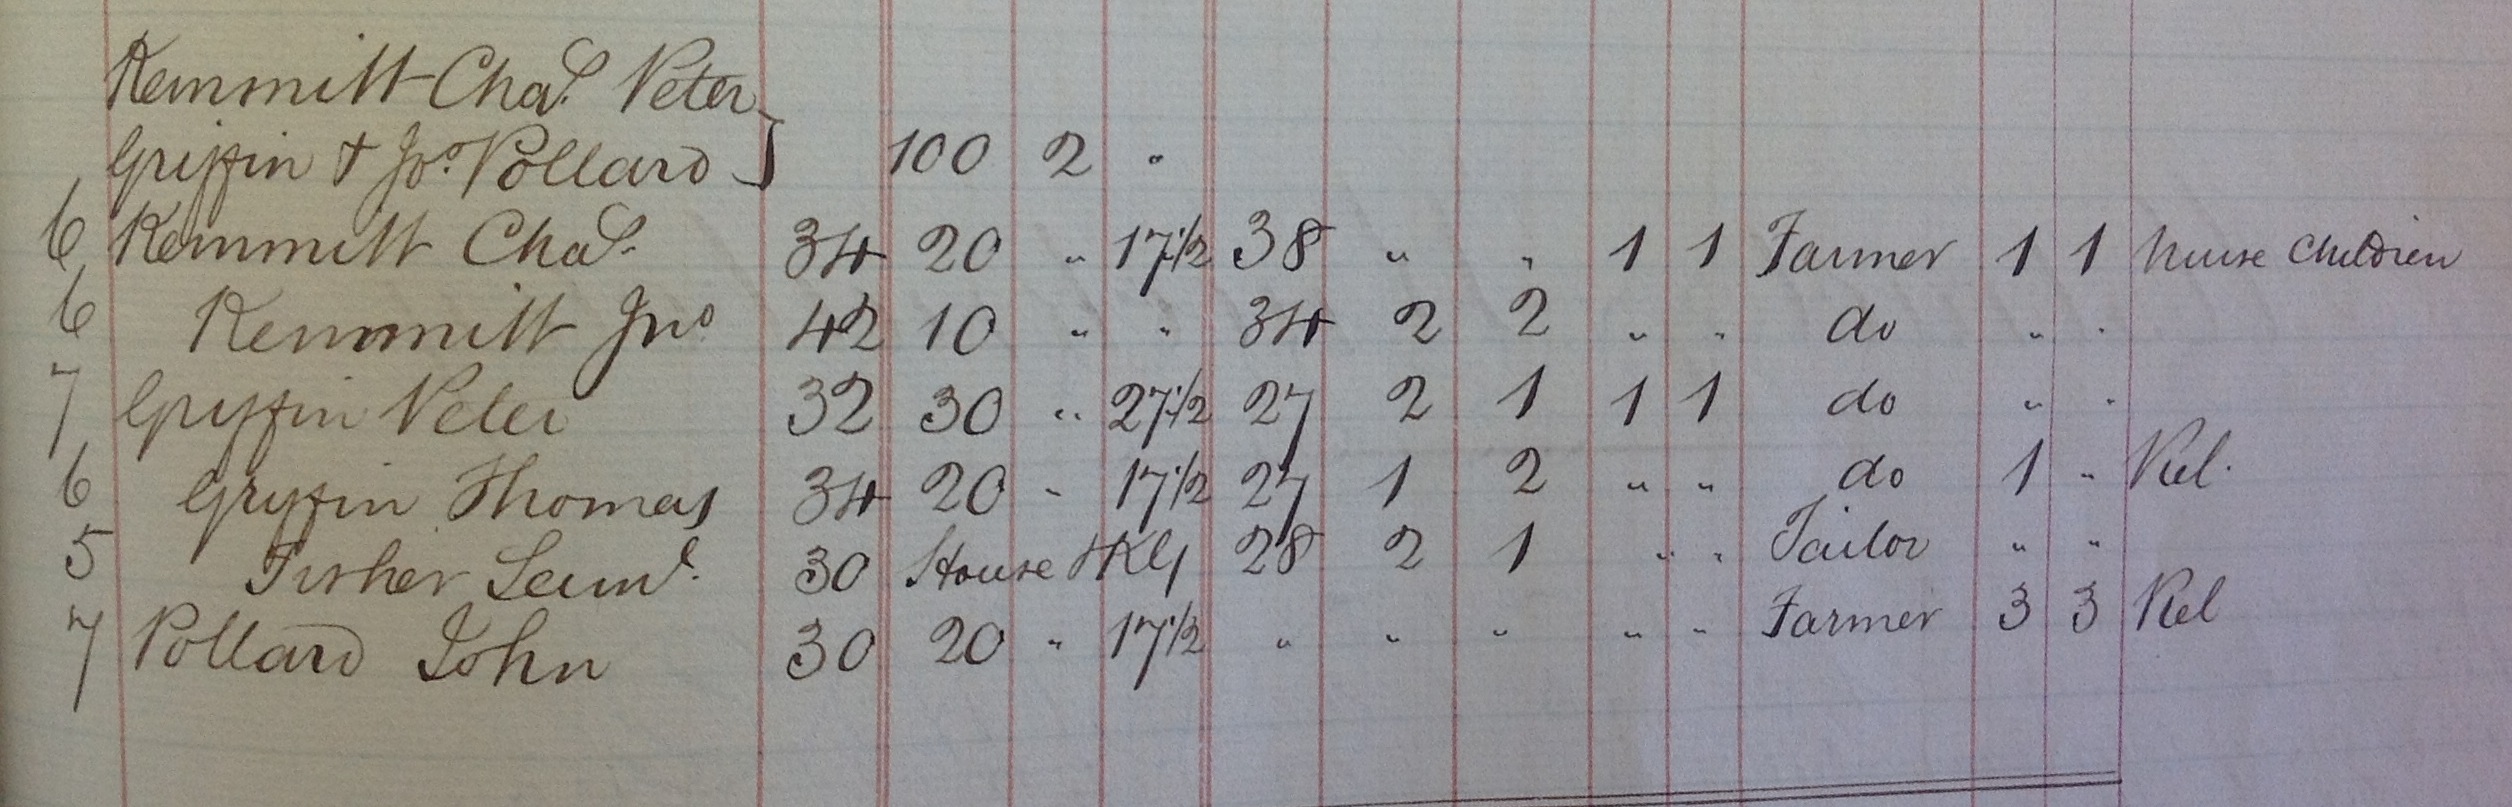 Kemmitt Chas. Peter
Griffin & Jno. Pollard } 100 2 "
6 Kemmitt Chas. 34 20 " 17 1/2 38 " " 1 1 Farmer 1 1 Nurse Children
6 Kemmitt Jno 42 10 " " 34 2 2 " " do " "
7 Griffin Peter 32 30 " 27 1/2 27 2 1 1 1 do " "
6 Griffin Thomas 34 20 " 17 1/2 27 1 2 " " do 1 " Rel.
5 Fisher Saml. 30 House 28 2 1 " " Tailor " "
7 Pollard John 30 20 " 17 1/2 " " " " " Farmer 3 3 Rel